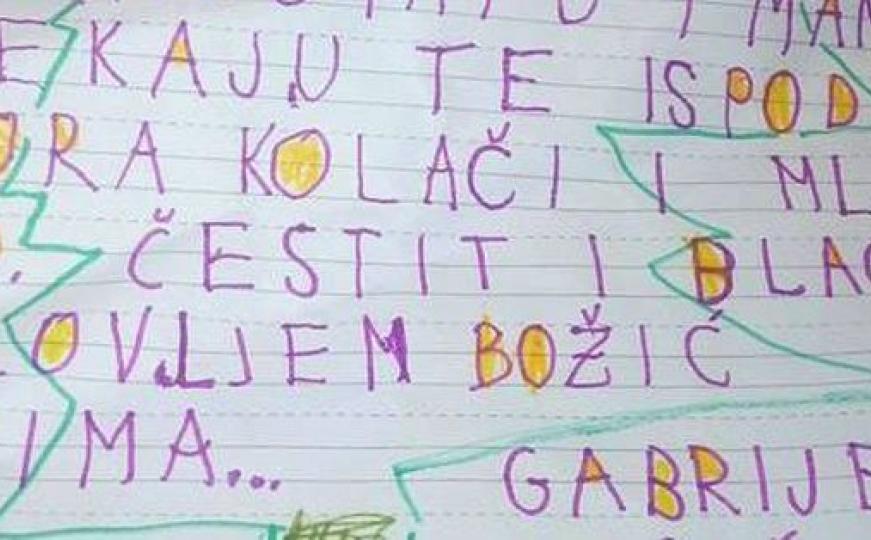 EKAJU TE ISPOD
ORA KOLAČI I ML
ČESTIT I BLAG
OVLJEM BOŽIĆ
IMA...
GABRIJE